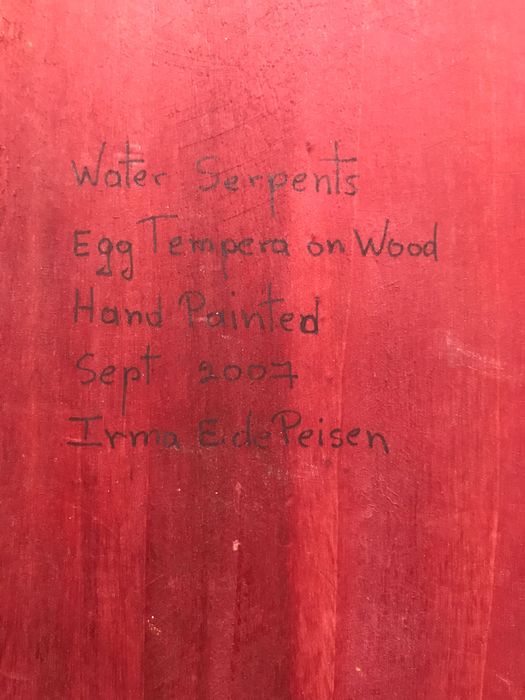 Water Serpents
Egg Tempera on Wood
Hand Painted
Sept 2007
Irma E.de Peisen